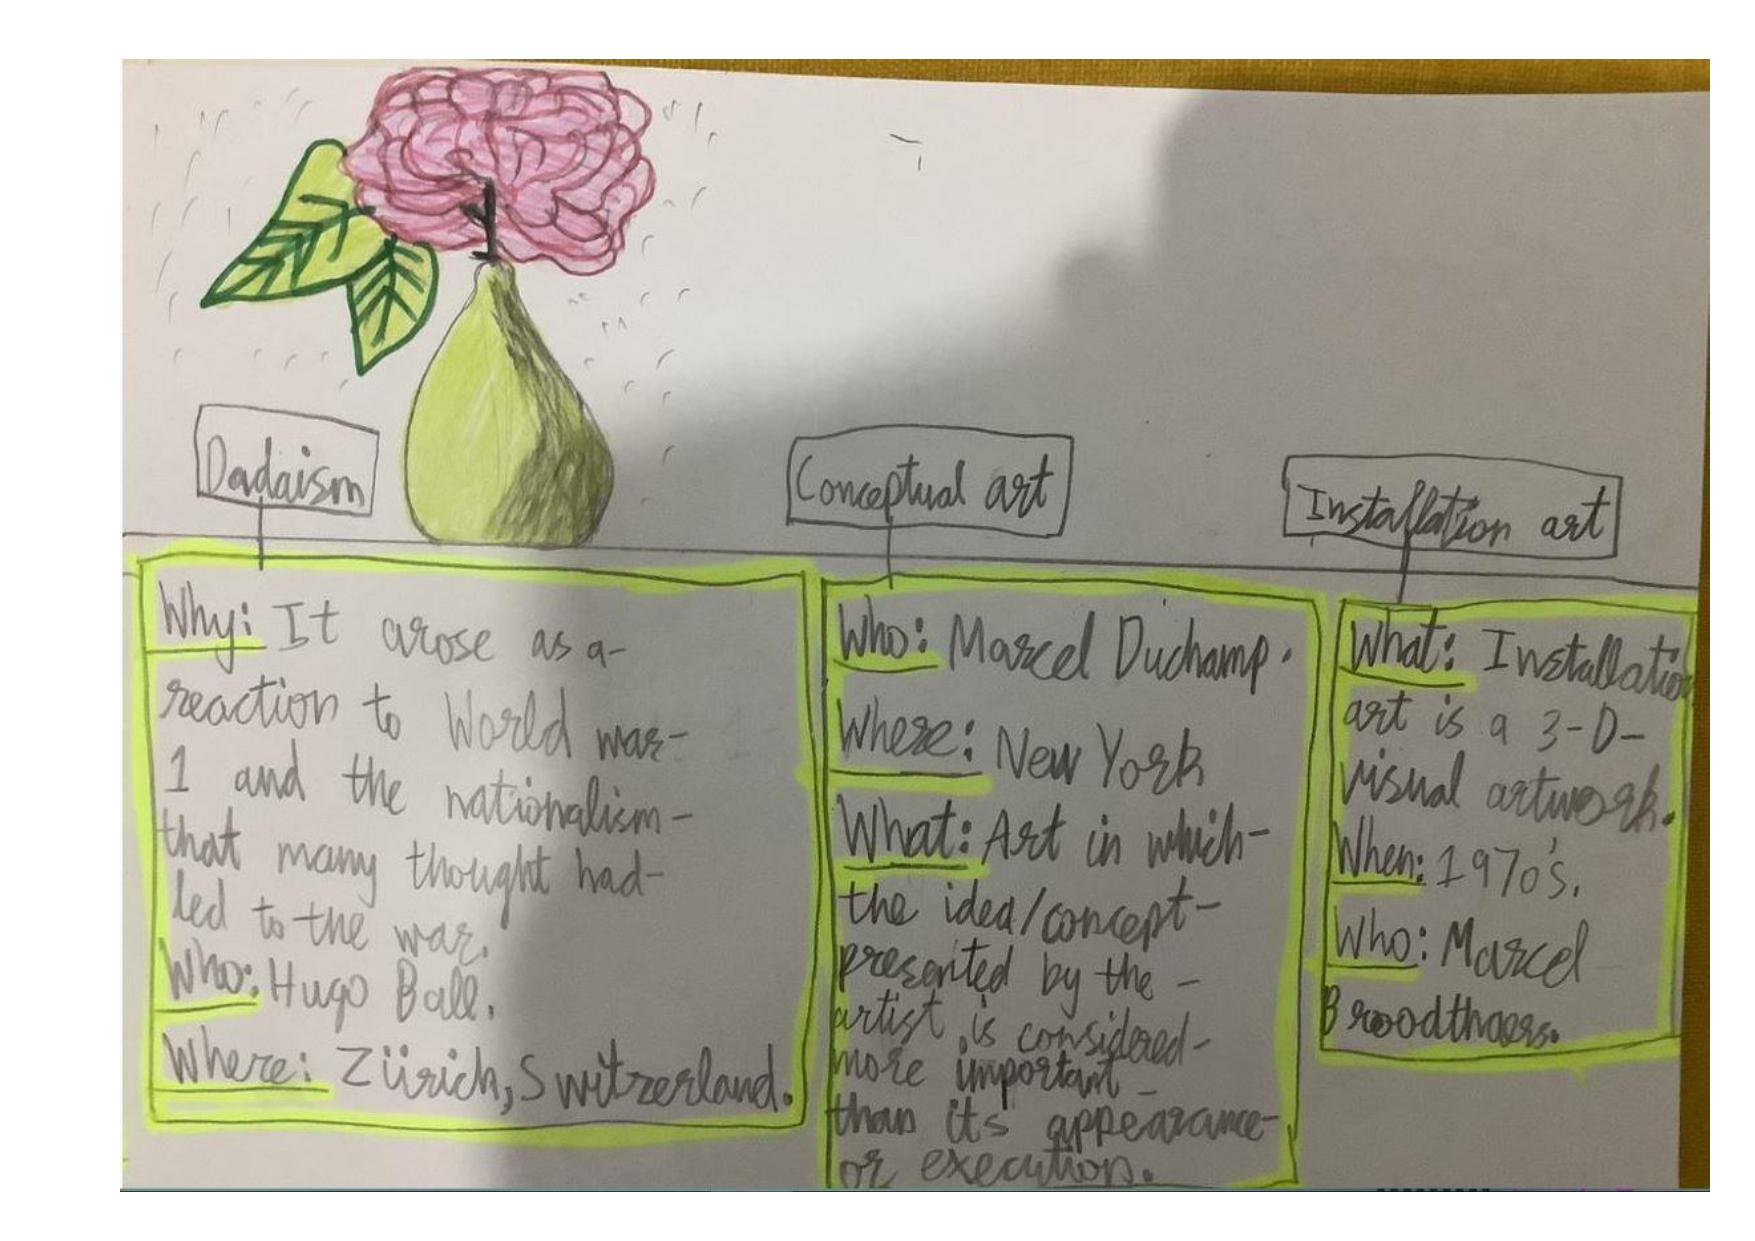 Dadaism
Why: It arose as a-
reaction to World war-
1 and the nationalism-
that many thought had-
led to the war.
Who: Hugo Ball.
Where: Zürich, Switzerland.
Conceptual art
Who: Marcel Duchamp.
Where: New York
What: Art in which-
the idea/concept-
presented by the-
artist, is considered-
more important-
than its appearance-
or execution.
Installation art
What: Installation
art is a 3-D-
visual artwork.
When: 1970's.
Who: Marcel
Broodthaers.